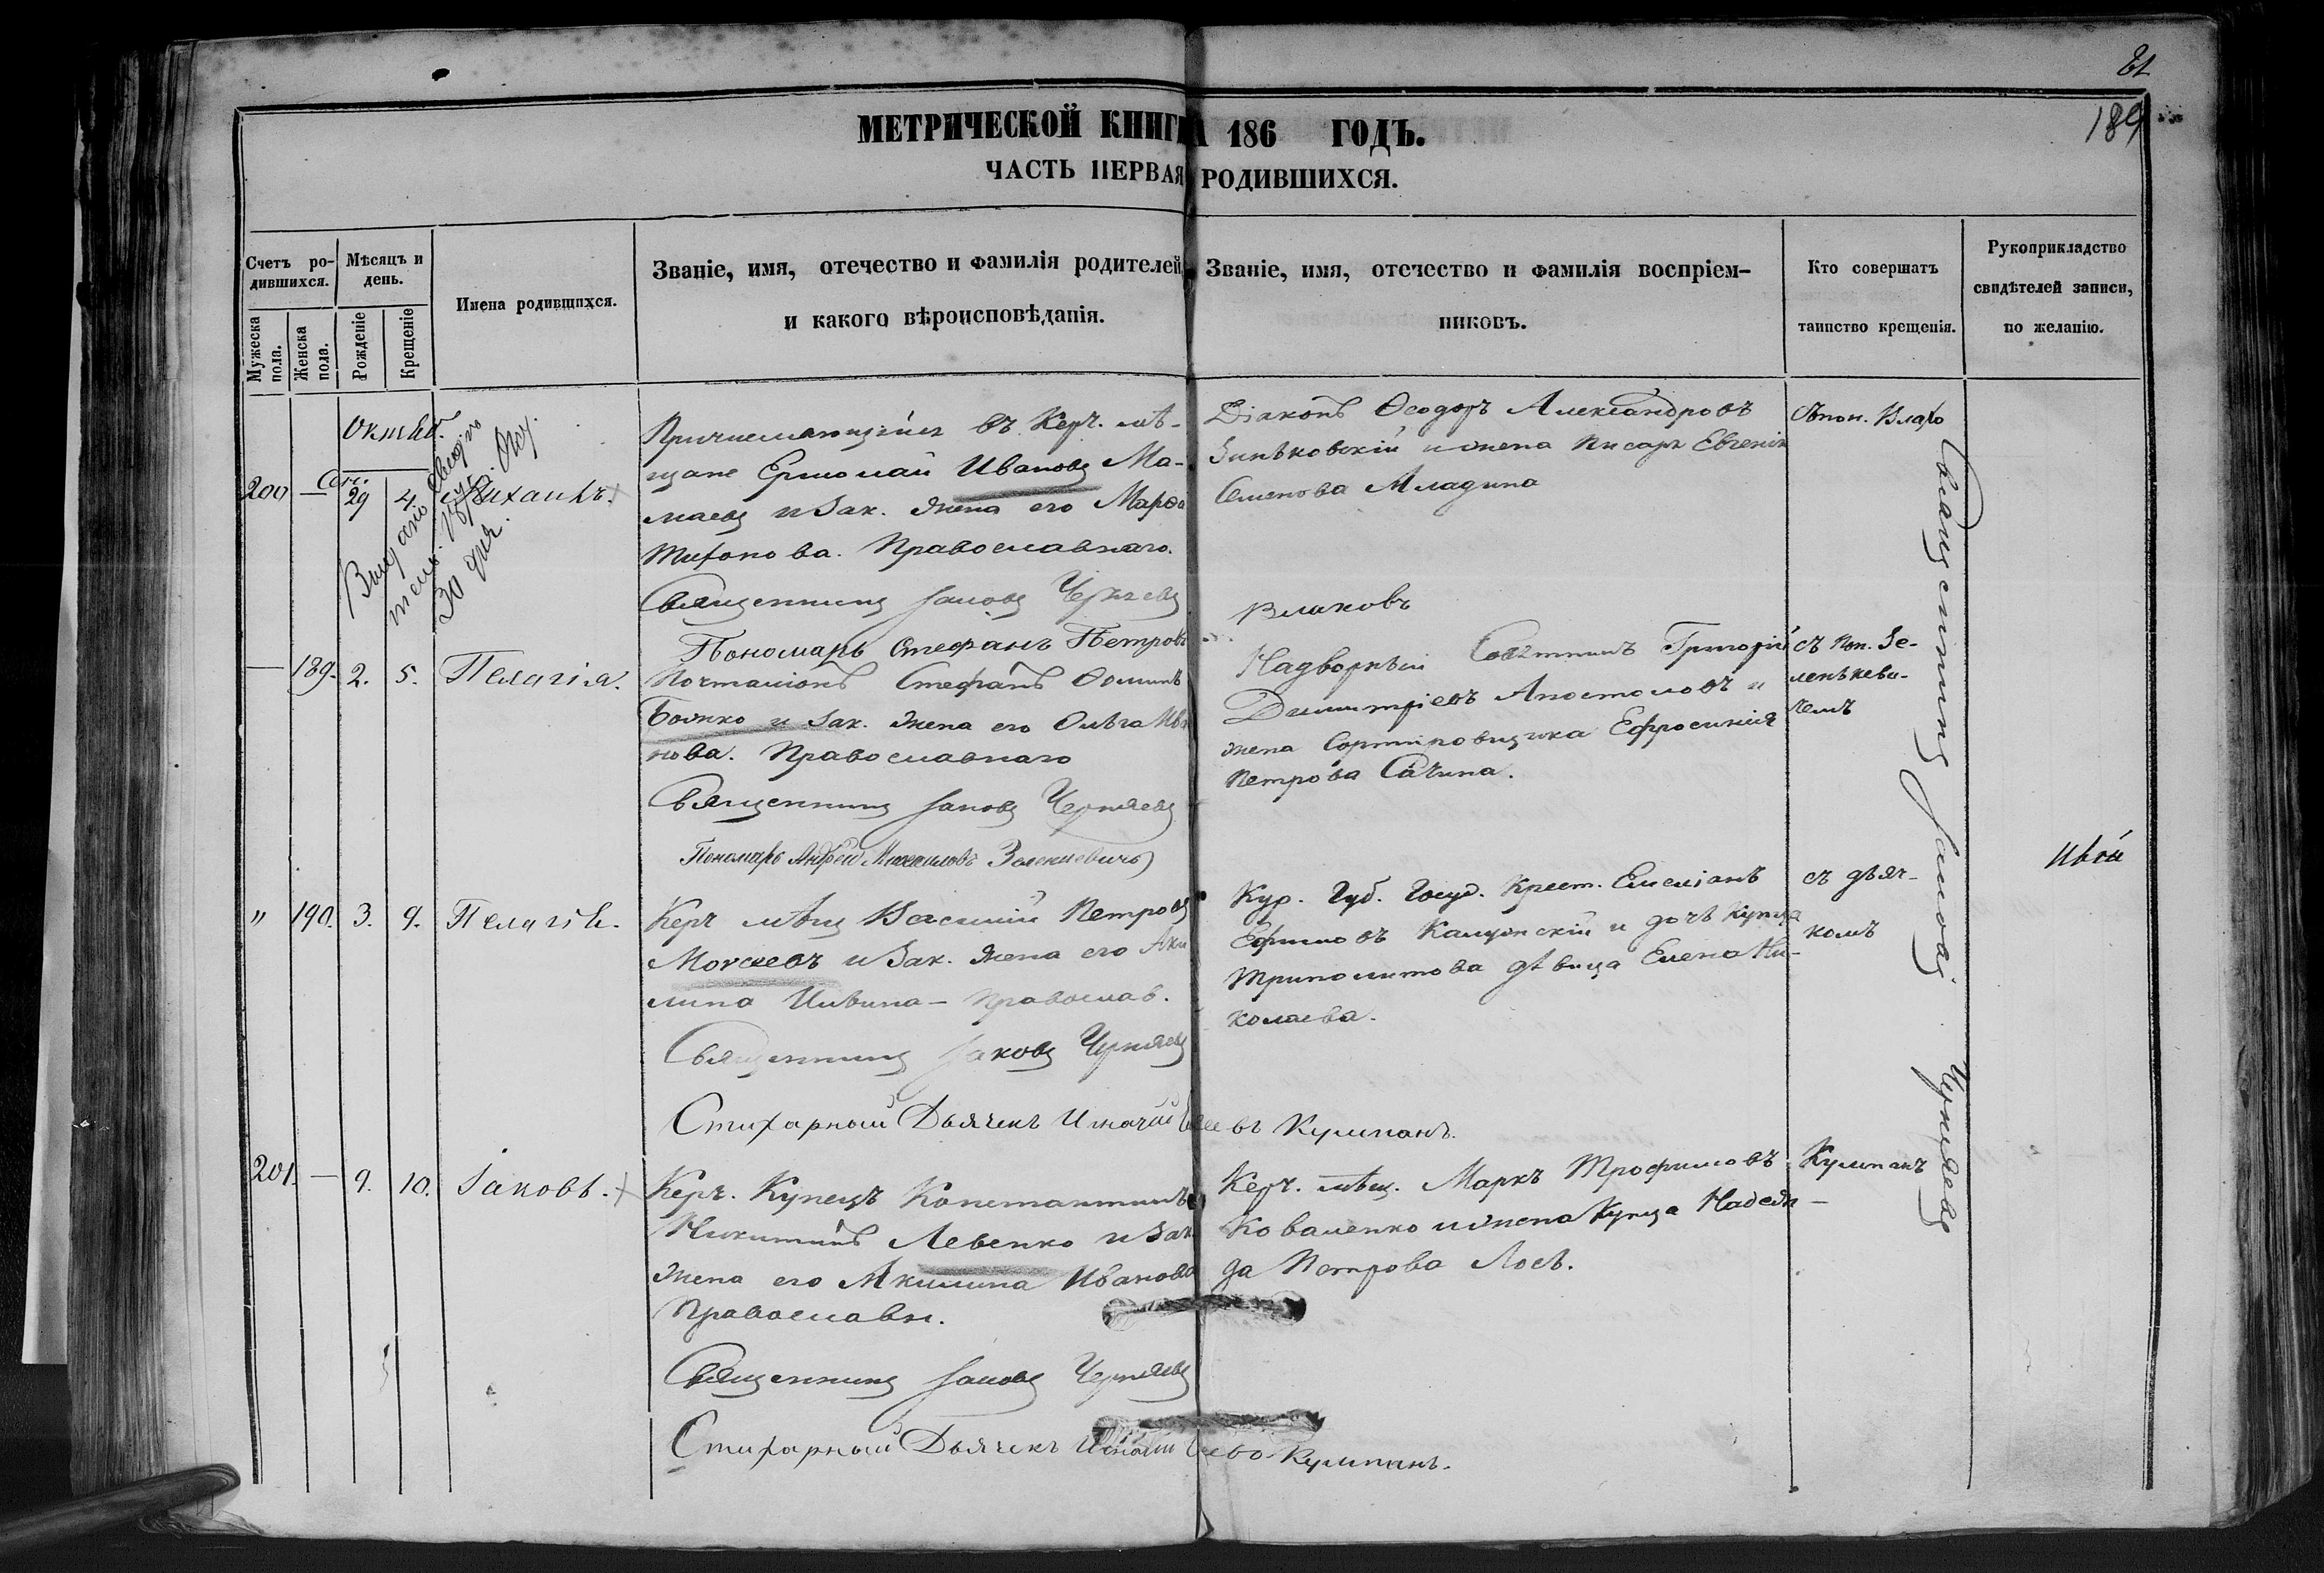 189
МЕТРИЧЕСКОЙ КНИГИ НА 186 ГОДЪ.
ЧАСТЬ ПЕРВАЯ РОДИВШИХСЯ.
Счетъ ро-
дившихся.
Мужеска пола.
Женска пола.
Мѣсяцъ и
день.
Рожденіе
Крещеніе
Имена родившихся.
Званіе, имя, отечество и фамилія родителей,
и какого вѣроисповѣданія.
Званіе, имя, отечество и фамилія воспріем-
никовъ.
Кто совершатъ
таинство крещенія.
Рукоприкладство
свидѣтелей записи,
по желанію.
Октяб.
200 — Сен. 29 4. Михаилъ.
30
Причисляющійся въ Керч. мѣ-
щане Ермолай Ивановъ Ма-
маевъ и Зак. жена его Марѳа
Тихонова. Православнаго.
Священникъ Іаковъ Черняевъ
Пономарь Стефанъ Петровъ
Діаконъ Ѳеодоръ Александровъ
Зиньковскій и жена Писаря Евгенія
Семенова Младина
Влаховъ
съ пон. Влахо
— 189. 2. 5. Пелагія.
Почталіонъ Стефанъ Ѳоминъ
Божко и Зак. жена его Ольга Ива
нова. Православнаго
Священникъ Іаковъ Черняевъ
Пономарь Андрей Михаиловъ Зеленкевичъ
Надворный Совѣтникъ Григорій
Димитріевъ Апостоловъ и
жена Сортировщика Ефросинія
Петрова Сачина.
съ Пон. Зе-
ленькеви-
чемъ
" 190. 3. 9. Пелагія.
Керч мѣщ Василій Петровъ
Моисеевъ и Зак. жена его Аки
лина Ильина — Православ.
Священникъ Іаковъ Черняевъ
Стихарный Дьячекъ Игнатій Кулипанъ.
Кур. Губ. Госуд. Крест. Емеліанъ
Ефимовъ Калужскій и дочь Купца
Триполитова дѣвица Елена Ни-
колаева.
съ дьяч-
комъ
201. — 9. 10. Іаковъ.
Керч. Купецъ Константинъ
Никитинъ Левенко и Зак
жена его Акилина Иванова
Православн.
Священникъ Іаковъ Черняевъ
Стихарный Дьячекъ Игнатій Кулипанъ.
Керч. мѣщ. Маркъ Трофимовъ
Коваленко и жена Купца Надеж-
да Петрова Лось.
Кулипанъ
—
Священникъ Іаковъ Черняевъ